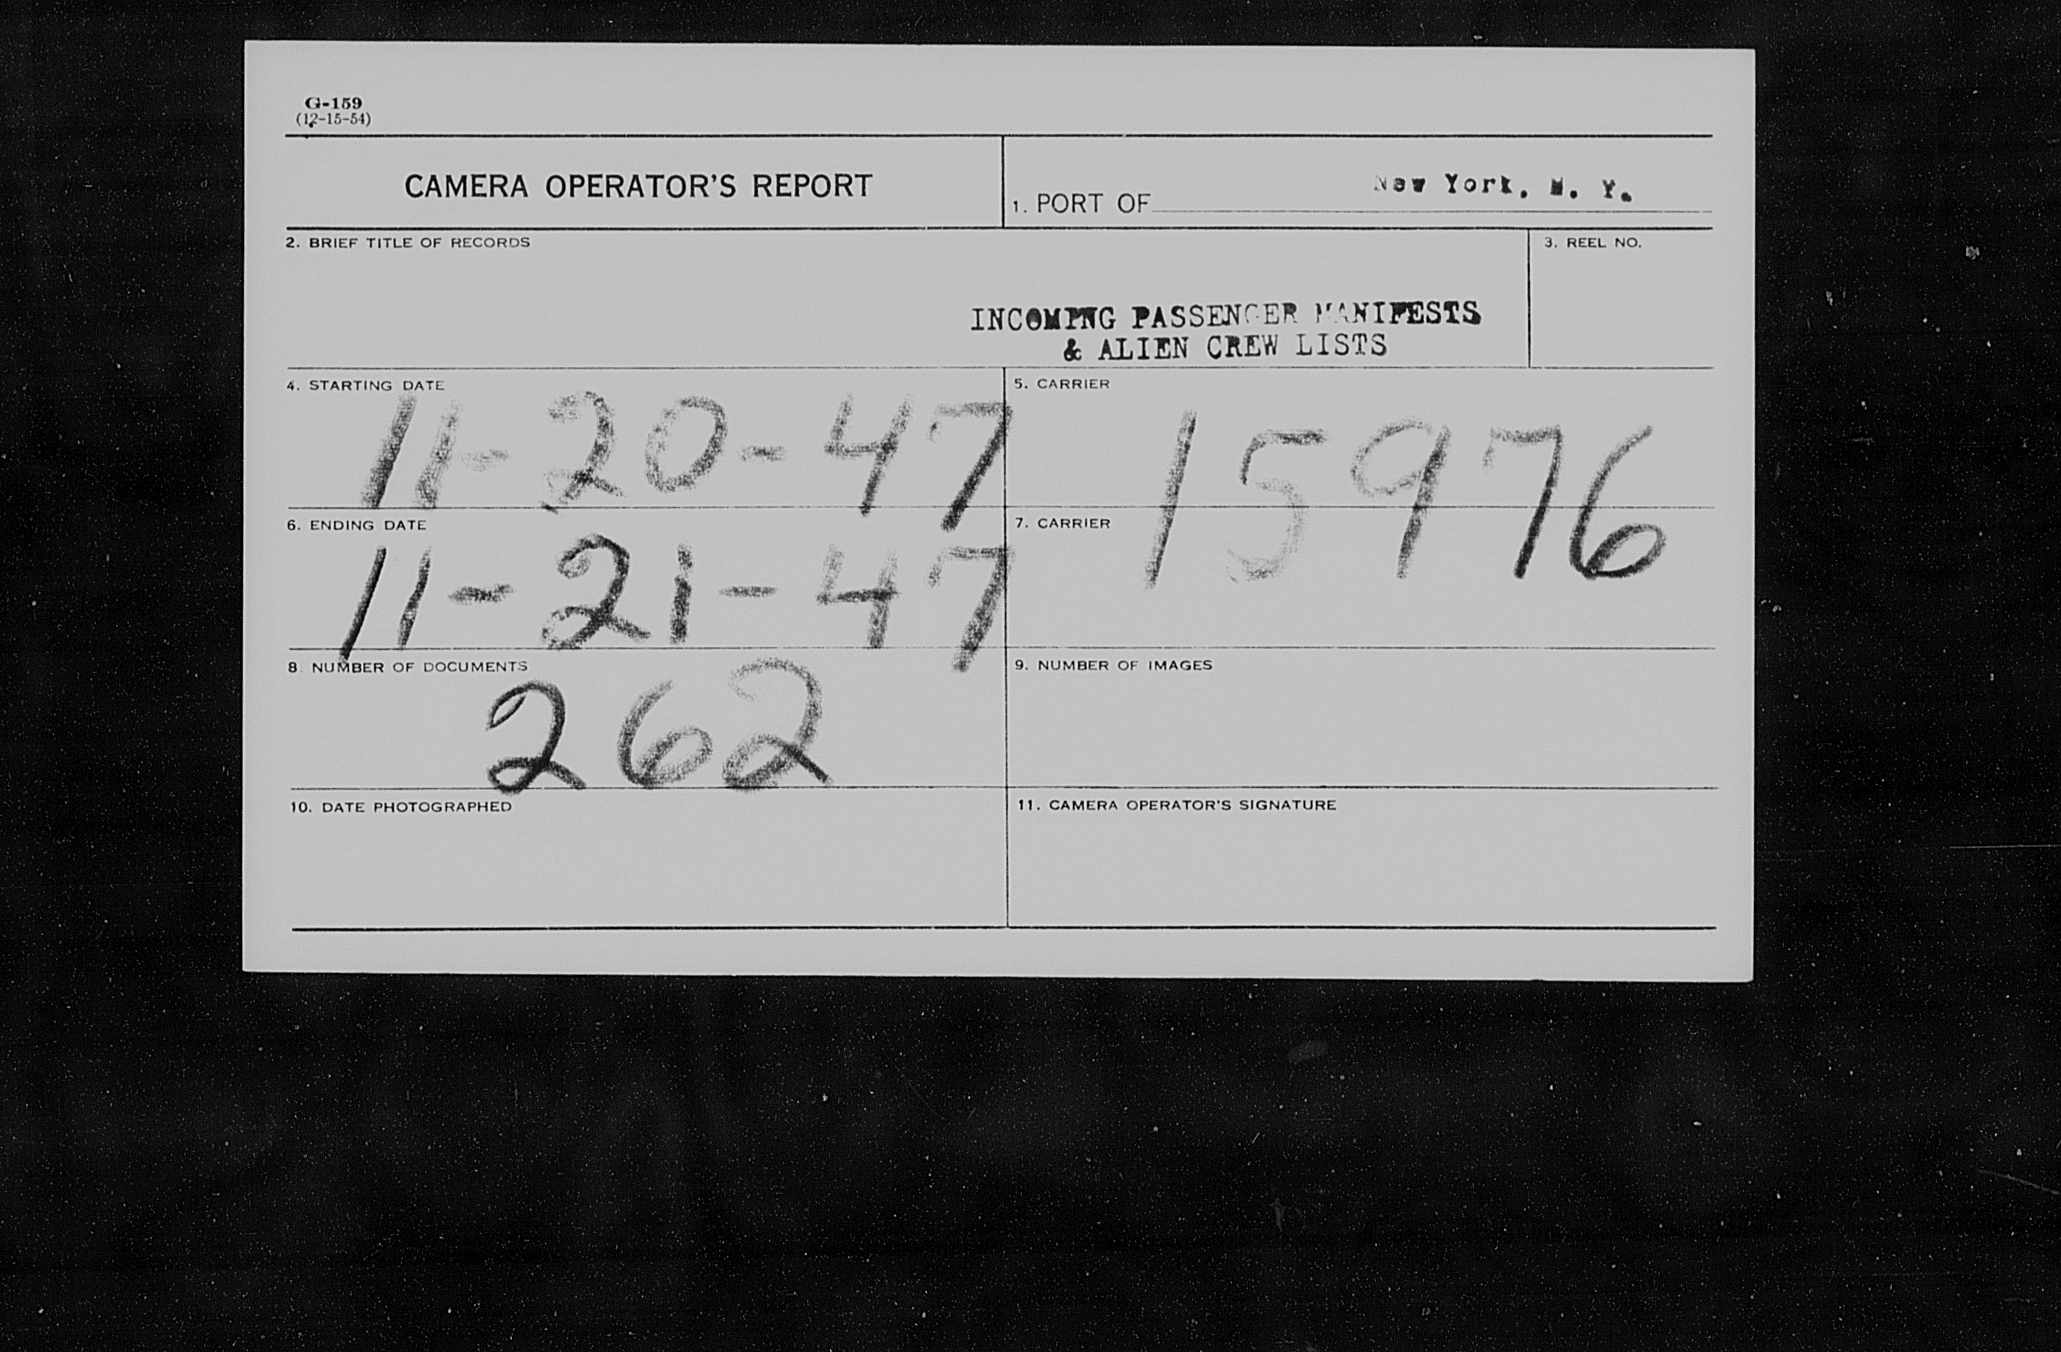 G-159
(12-15-54)
CAMERA OPERATOR'S REPORT
1. PORT OF New York, N. Y.
2. BRIEF TITLE OF RECORDS
3. REEL NO.
INCOMING PASSENGER MANIFESTS
& ALIEN CREW LISTS
4. STARTING DATE
11-20-47
5. CARRIER
15976
6. ENDING DATE
11-21-47
7. CARRIER
8. NUMBER OF DOCUMENTS
262
9. NUMBER OF IMAGES
10. DATE PHOTOGRAPHED
11. CAMERA OPERATOR'S SIGNATURE